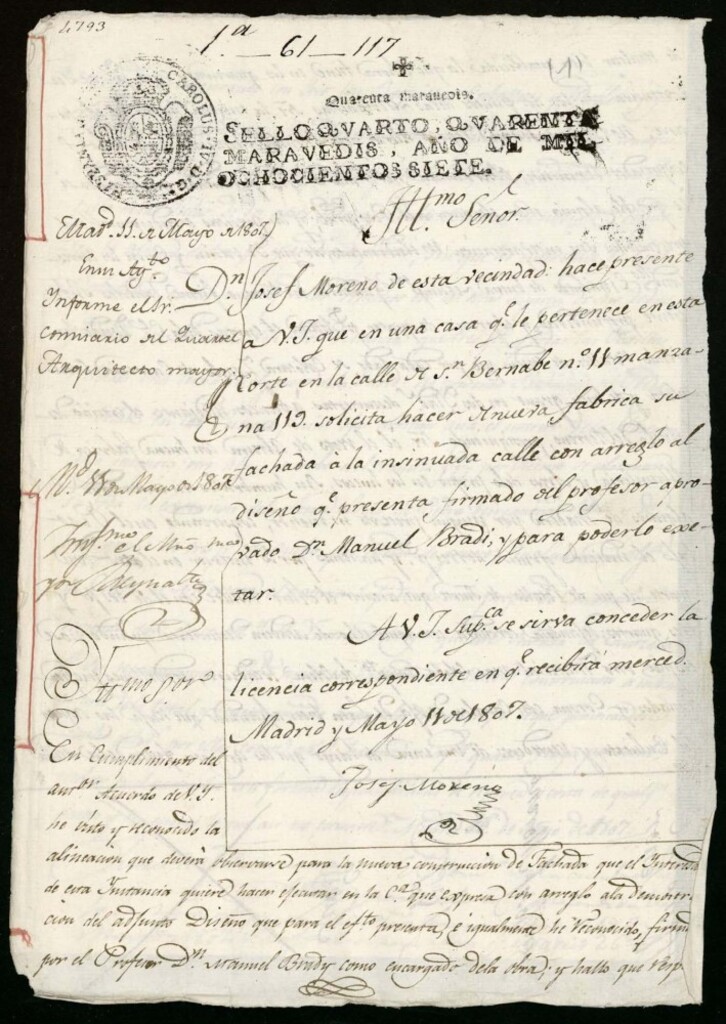 4793
1.ª — 61 — 117
(1)
HISPANIAR
CAROLUS IV D. G.
Quarenta maravedis.
SELLO QVARTO, QVARENTA
MARAVEDIS, AÑO DE MIL
OCHOCIENTOS SIETE.
Ill.mo Señor.
Mad.d 11. de Mayo de 1807
En su Ay.to
Informe el Sr.
comisario del Quartel
Arquitecto mayor.
D.n Josef Moreno de esta vecindad: hace presente
a V.I. que en una casa q.e le pertenece en esta
Corte en la calle de S.n Bernabe n.o 11 manza-
na 119. solicita hacer de nueva fabrica su
fachada á la insinuada calle con arreglo al
diseño q.e presenta firmado del profesor apro-
vado D.n Manuel Bradi, y para poderlo exe-
tar.
A V.I. Sup.ca se sirva conceder la
licencia correspondiente en q.e recibirá merced.
Madrid y Mayo 11 de 1807.
Josef Moreno
M.d 11 de Mayo de 1807
el Mro ma
yor
Yllmo Sor
En Cumplimiento del
antor Acuerdo de V.I.
he visto y reconocido la
alineacion que deverá observarse para la nueva construccion de Fachada que el Interes
de esta Instancia quiere hacer egecutar en la C.a que expresa con arreglo a la demostra-
cion del adjunto Diseño que para el ef.to presenta, é igualmente he reconocido, firmado
por el Profesor D.n Manuel Brady como encargado de la obra; y hallo que resp